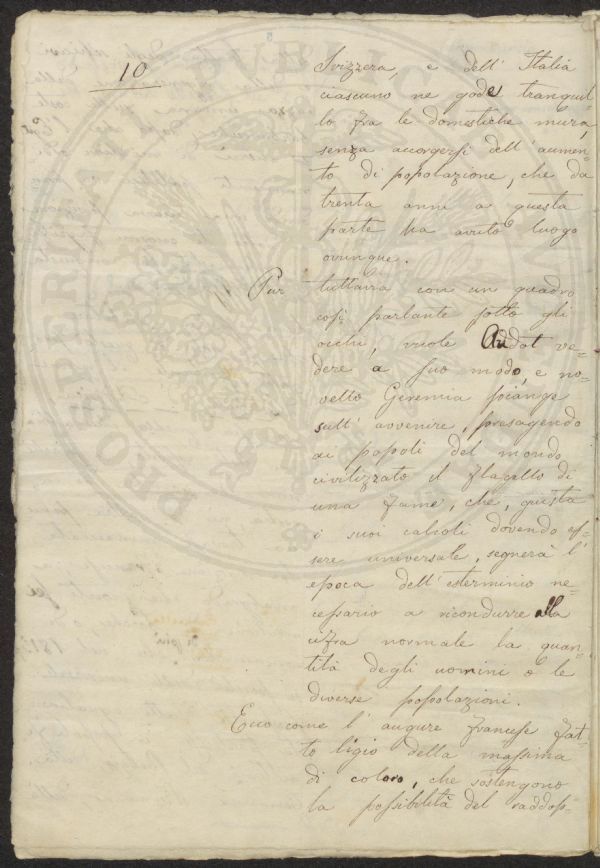 10
Svizzera, e dell' Italia
ciascuno ne gode tranquil-
lo fra le domestiche mura,
senza accorgersi dell' aumen-
to di popolazione, che da
trenta anni a questa
parte ha avuto luogo
ovunque.
Pur tuttavia con un quadro
così parlante sotto gli
occhi, vuole Audot ve-
dere a suo modo, e no-
vello Geremia piange
sull' avvenire, presagendo
ai popoli del mondo
civilizzato il flagello di
una fame, che, giusta
i suoi calcoli dovendo es-
sere universale, segnerà l'
epoca dell' esterminio ne-
cessario a ricondurre alla
cifra normale la quan-
tità degli uomini o le
diverse popolazioni.
Ecco come l' augure francese fat-
to ligio della massima
di coloro, che sostengono
la possibilità del raddop-